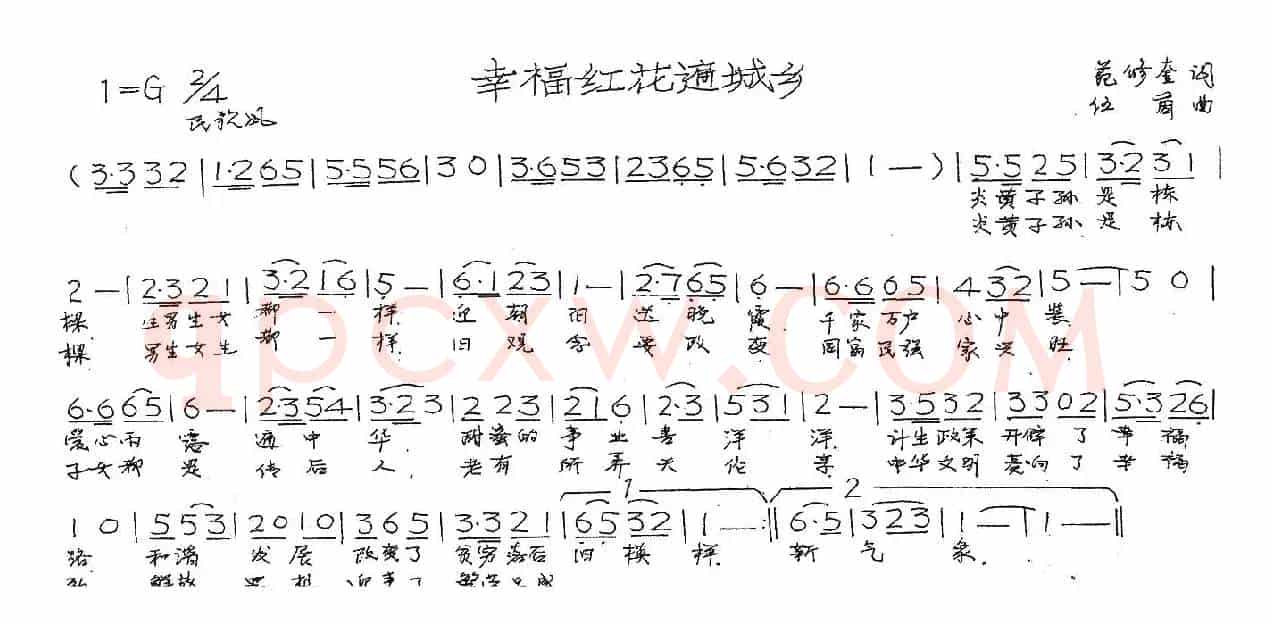 幸福红花遍城乡
1=G 2/4
民歌风
范修奎 词
伍 曲
(3·3 3 2 | 1·2 6 5 | 5·5 5 6 | 3 0 | 3·6 5 3 | 2 3 6 5 | 5·6 3 2 | 1 — ) | 5·5 2 5 | 3·2 3 1 |
炎黄子孙 是 栋
炎黄子孙 是 栋
2 — | 2·3 2 1 | 3·2 1 6 | 5 — | 6·1 2 3 | 1 — | 2·7 6 5 | 6 — | 6·6 6 5 | 4 3 2 | 5 — | 5 0 |
樑 生男生女 都 一 样 迎 朝 阳 送 晚 霞 千家万户 心 中 装
樑 男生女生 都 一 样 旧 观 念 要 改 变 国富民强 家 兴 旺
qpcxw.com
6·6 6 5 | 6 — | 2 3 5 4 | 3·2 3 | 2 2 3 | 2 1 6 | 2·3 | 5 3 1 | 2 — | 3 5 3 2 | 3 3 0 2 | 5·3 2 6 |
爱心雨 露 遍 中 华 甜蜜的 事 业 喜 洋 洋 计生政策 开辟 了 幸 福
子女都 是 传 后 人 老有 所 养 天 伦 享 中华文明 奏响 了 幸 福
1 0 | 5 5 3 | 2 0 1 0 | 3 6 5 | 3·3 2 1 | 1 6 5 3 2 | 1 — :‖ 2 6·5 | 3 2 3 | 1 — | 1 — ‖
路 和谐 发 展 改变了 贫穷落后 旧 模 样 新 气 象
解放